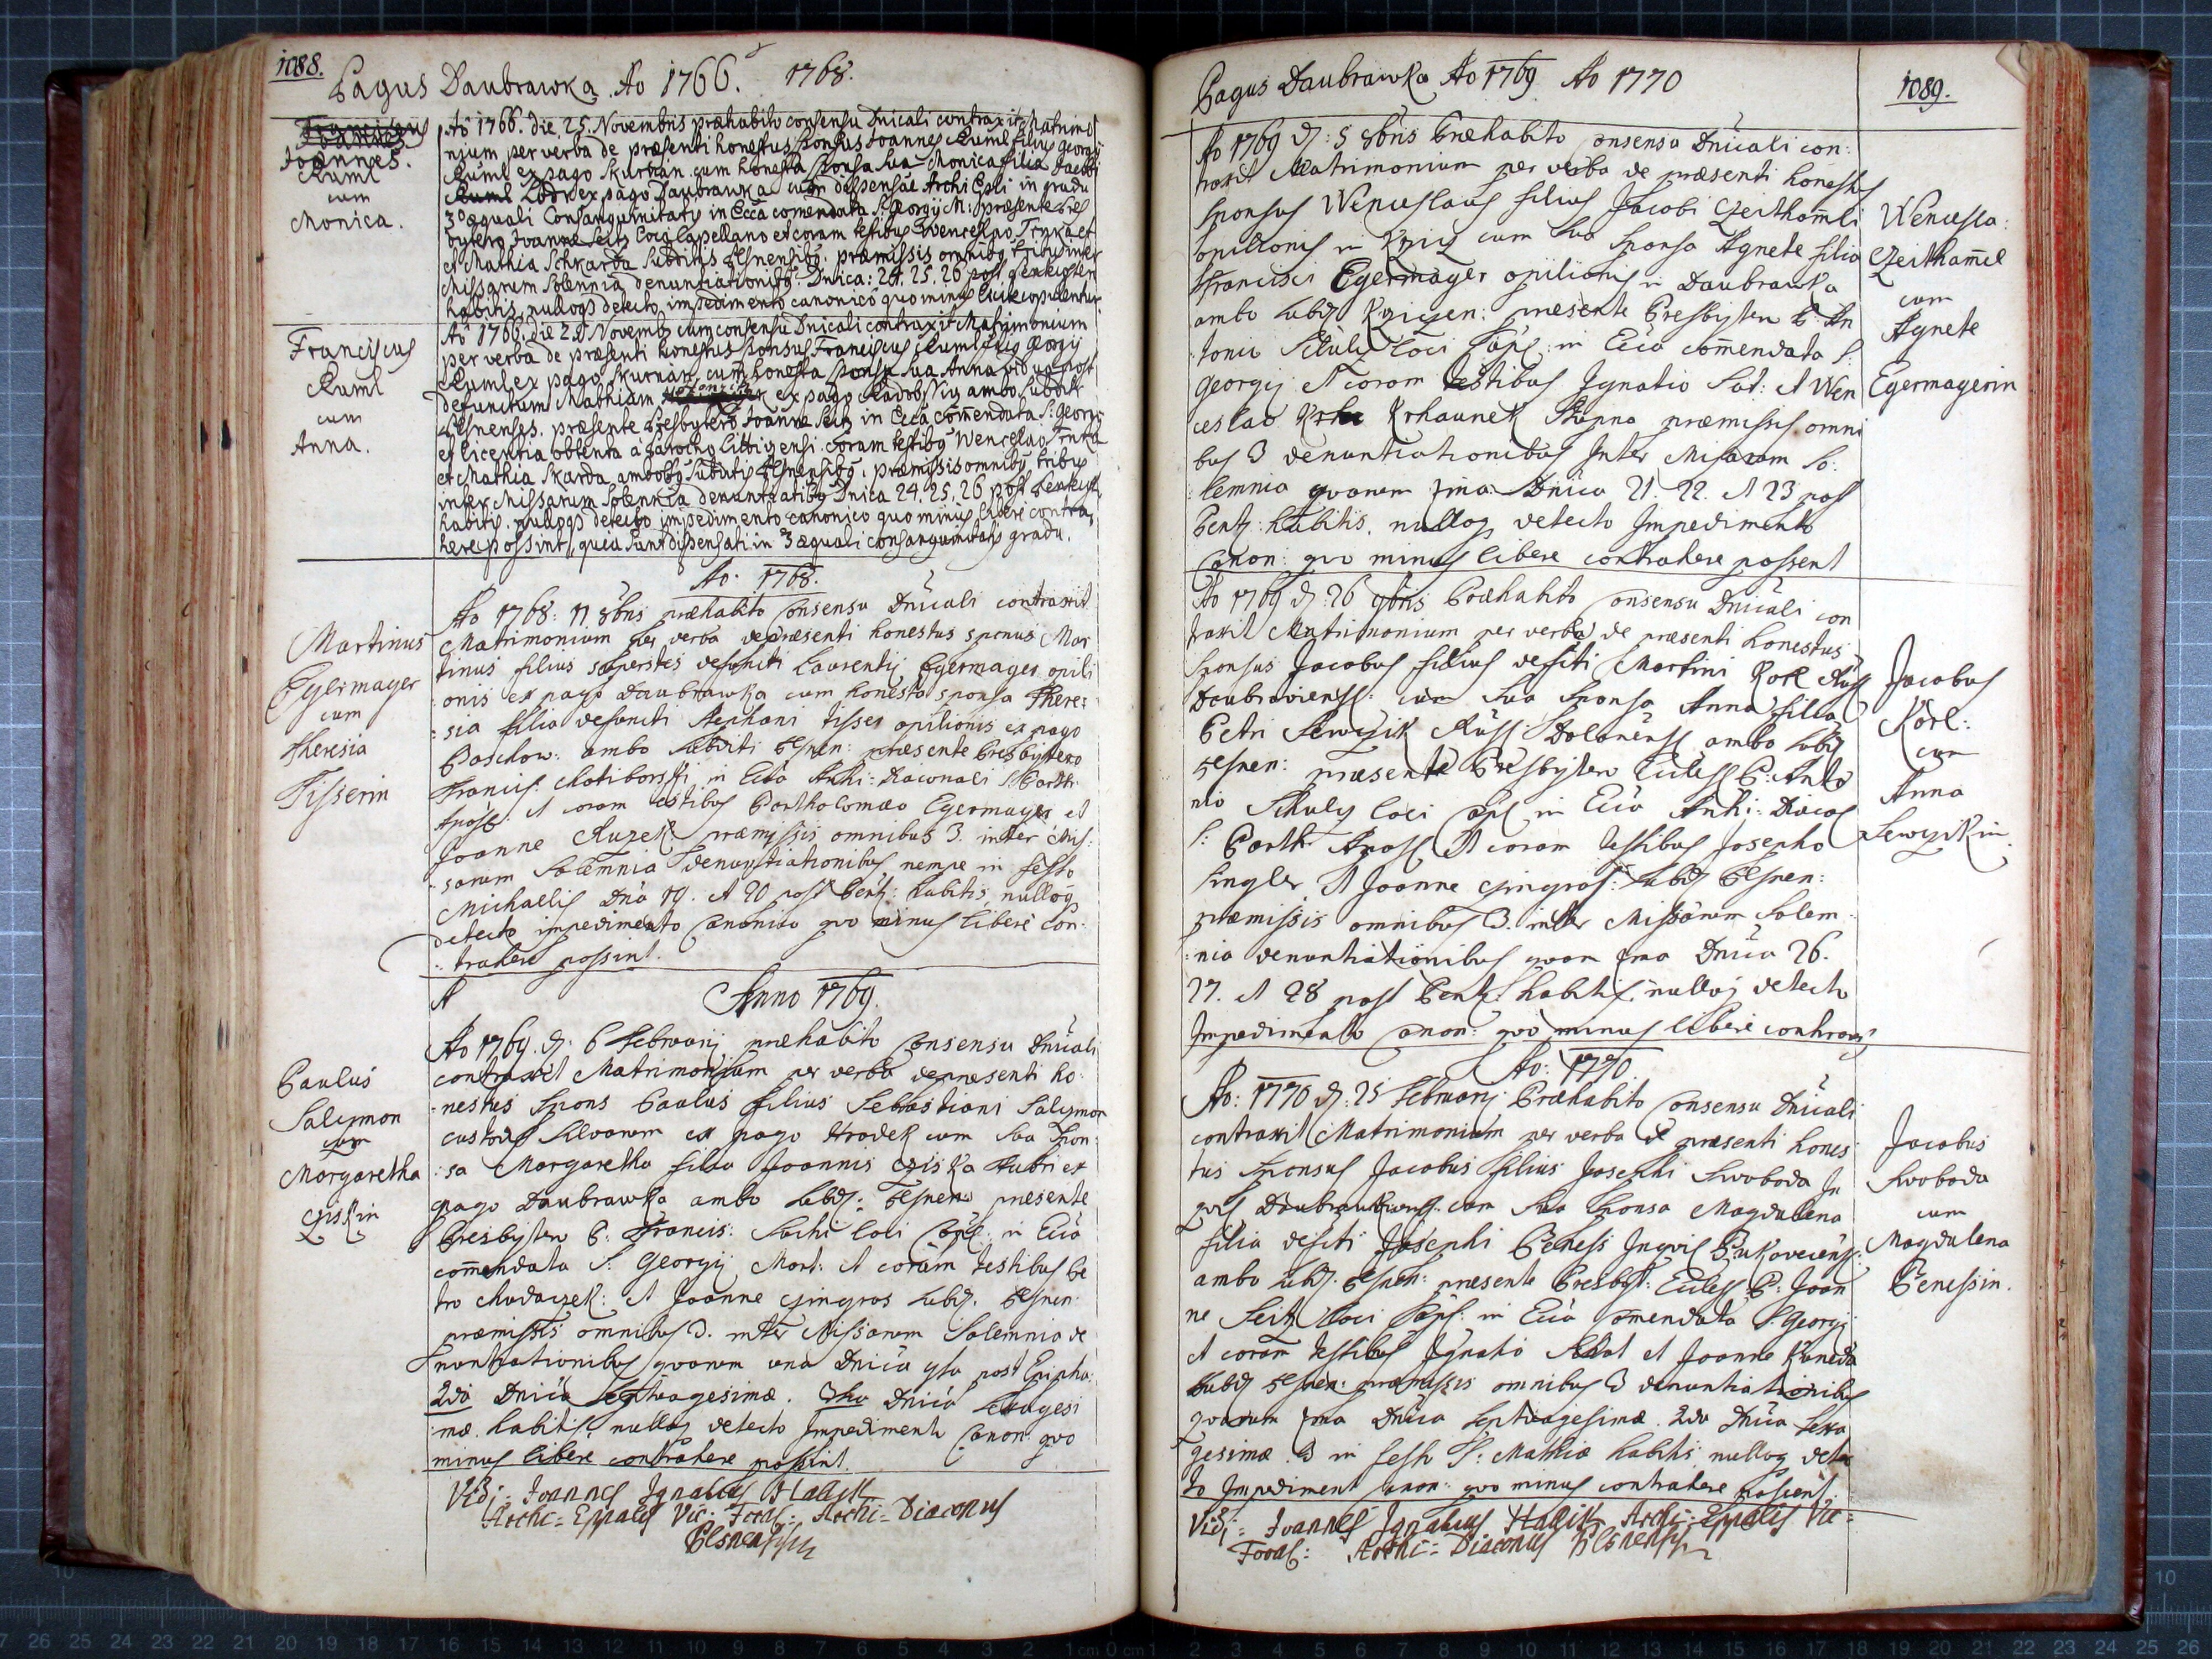 1088.
Pagus Daubrawka Ao 1766. 1768.
Joannes.
Ruml
cum
Monica.
Ao 1766. die 25. Novembris præhabito consensu Dnicali contraxit Matrimo
nium per verba de præsenti honestus sponsus Joannes Ruml filius georgij
Ruml ex pago Skurnian cum honesta sponsa sua Monica filia Jacobi
ex pago Daubrawka cum dispensãe Archi Epli in gradu
3o æquali Consanguinitatis in Eccã comendata S. Georgij M: præsente Pres
bytero Joanne Seitz loci Capellano et coram testibus Wenceslao Trnka et
et Mathia Schkarda subditis Plsnensibg. præmissis omnibg tribus inter
Missarum solennia denuntiationibg. Dnica: 24. 25. 26 post Pentecosten
habitis, nulloq detecto impedimento canonico quo minus licite copulentur.
Franciscus
Ruml
cum
Anna.
Ao 1766. die 25 Novemb cum consensu Dnicali contraxit Matrimonium
per verba de præsenti honestus sponsus Franciscus Ruml filius georgij
Ruml ex pago Skurnian cum honesta sponsa sua Anna vidua post
defunctum Mathiam ex pago Radobskij ambo subditi
Plsnenses. præsente Presbytero Joanne Seitz in Eccã comendata S. Georgij
et licentia obtenta à parocho Littizensi. coram testibg Wenceslao Trnka
et Mathia Skarda ambobg subditis Plsnensibg. præmissis omnibg tribus
inter Missarum solennia denuntiatibg Dnica 24. 25. 26 post Pentecost
habitis. nulloqs detecto impedimento canonico quo minus libere contra
here possint, quia sunt dispensati in 3 æquali consanguinitatis gradu.
Ao. 1768.
Martinus
Egermayer
cum
Theresia
Tisserin
Ao 1768: 11 8bris præhabito Consensu Dnicali contraxit
Matrimonium per verba de præsenti honestus sponsus Mar
tinus filius superstes defuncti Laurentij Egermayer opili
onis ex pago Daubrawka cum honesta sponsa There:
sia filia defuncti Stephani Tisser opilionis ex pago
Paschow: ambo subditi Plsnen: præsente Presbytero
Francis: Chotiborsski in Eccã Archi: Diaconali S. Barth:
Apost: et coram testibus Bartholomæo Egermayer et
Joanne Ruzek præmissis omnibus 3. inter Mis:
sarum Solemnia denuntiationibus nempe in festo
Michaelis Dnã 19. et 20 post Pent: habitis, nulloq
detecto impedimento Canonico quo minus libere con:
trahere possint.
A
Anno 1769.
Paulus
Salymon
cum
Margaretha
Cziskin
Ao 1769. d. 6 Februarij præhabito Consensu Dnicali
contraxit Matrimonium per verba de præsenti ho:
nestus Spons Paulus filius Sebastiani Salymon
custodis Silvarum ex pago Hradek cum sua Spon:
sa Margaretha filia Joannis Cziska Fabri ex
pago Daubrawka ambo subd: Plsnen: præsente
Presbytero P: Francis: Sachi loci Capl: in Eccã
comendata S: Georgij Mart: et coram testibus Pe
tro Chudaczek: et Joanne Czingros subd. Plsnen:
præmissis omnibus 3. inter Missarum Solemnia de
nuntiationibus quarum una Dnica 4ta post Epipha:
2da Dnica Septuagesimæ. 3tia Dnica Sexagesi
:mæ. habitis nulloq detecto Impedimento Canon: quo
minus libere contrahere possint.
Vidi: Joannes Ignatius Hallik
Archi=Eppalis Vic: Foras: Archi=Diaconus
Plsnensis
Pagus Daubrawka Ao 1769 Ao 1770
1089.
Ao 1769 d: 5 8bris Præhabito Consensu Dnicali con:
traxit Matrimonium per verba de præsenti honestus
Sponsus Wenceslaus filius Jacobi Czeithamli
opilionis in Krziz cum sua Sponsa Agnete filia
Francisci Egermayer opilionis in Daubrawka
ambo subd Krzizen: præsente Presbytero P: An
tonio Schulz loci Capl: in Eccã comendata S:
Georgij et coram testibus Ignatio Sat: et Wen
ceslao Krhaunek Stupno præmissis omni
bus 3 denuntiationibus Inter Missarum So:
lemnia quarum 1ma Dnica 21. 22. et 23 post
Pent: habitis. nulloq detecto Impedimento
Canon: quo minus libere contrahere possent
Wencesla:
Czeithamel
cum
Agnete
Egermayerin
Ao 1769 d: 26 9bris Præhabito Consensu Dnicali con
traxit Matrimonium per verba de præsenti honestus
Sponsus Jacobus filius defcti Martini Korl
Daubraviensis: cum sua Sponsa Anna filia
Petri Sewczik Dolanens ambo subd
Plsnen: præsente Presbytero Eccles P: Anto
nio Schulz loci Capl in Eccã Archi: Diacos
S: Barth: Apost et coram testibus Josepho
Singler et Joanne Czingros: subd Plsnen:
præmissis omnibus 3. inter Missarum Solem:
:nia denuntiationibus quarum 1ma Dnica 26.
27. et 28 post Pent: habitis. nulloq detecto
Impedimento Canon: quo minus libere contrahere
Jacobus
Korl:
cum
Anna
Sewczikin.
Ao: 1770.
Ao: 1770 d: 25 Februarij Præhabito Consensu Dnicali
contraxit Matrimonium per verba de præsenti hones
tus Sponsus Jacobus filius Josephi Swoboda In
quil Daubrawkiens: cum sua Sponsa Magdalena
filia defcti Josephi Beness Inquil Bukoveciens:
ambo subd. Plsnen: præsente Presbyt: Eccles P: Joan
ne Seitz loci Capl: in Eccã Comendata S. Georgij
et coram testibus Ignatio et Joanne Kaneda
subd Plsnen: præmissis omnibus 3 denuntiationibus
quarum 1ma Dnica Septuagesimæ. 2da Dnica Sexa
gesimæ. 3 in festo S: Mathiæ habitis nulloq detec
to Impediment Canon: quo minus contrahere possent.
Jacobus
Swoboda
cum
Magdalena
Benessin.
Vidi: Joannes Ignatius Hallik Archi=Eppalis Vic=
Foras: Archi=Diaconus Plsnensis